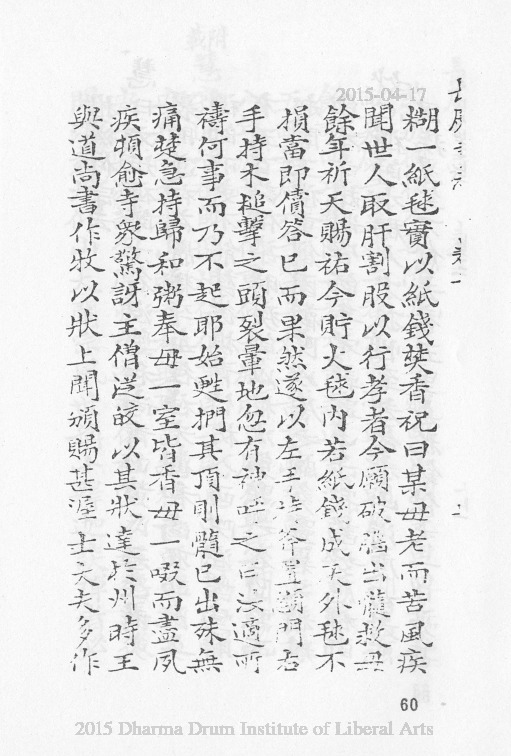 2015-04-17
糊一紙毬實以紙錢焚香祝曰某毋老而苦風疾
聞世人取肝割股以行孝者今願破腦出髓救毋
餘年祈天賜祐今貯火毬內若紙錢成灰外毬不
損當即償答已而果然遂以左手 斧置顖門右
手持木槌擊之頭裂暈地忽有神呼之曰汝適所
禱何事而乃不起耶始甦捫其頂則髓已出殊無
痛楚急持歸和粥奉毋一室皆香毋一啜而盡夙
疾頓愈寺衆驚訝主僧從皎以其狀達於州時王
與道尚書作牧以狀上聞頒賜甚渥士大夫多作
60
2015 Dharma Drum Institute of Liberal Arts